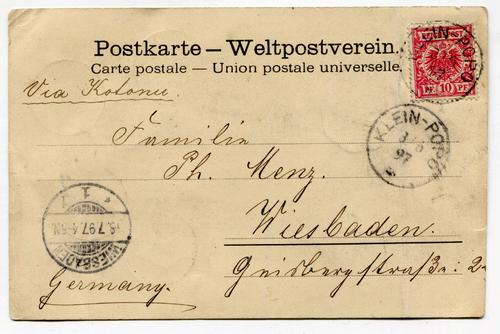 Postkarte – Weltpostverein.
Carte postale – Union postale universelle.
Via Kotonu.
KLEIN-POPO
10 PF
KLEIN-POPO
3/6
97
Familie
Ph. Menz.
Wiesbaden.
Geisbergstraße: 2
1 * 1
8.7.97.4-5N.
WIESBADEN
Germany.